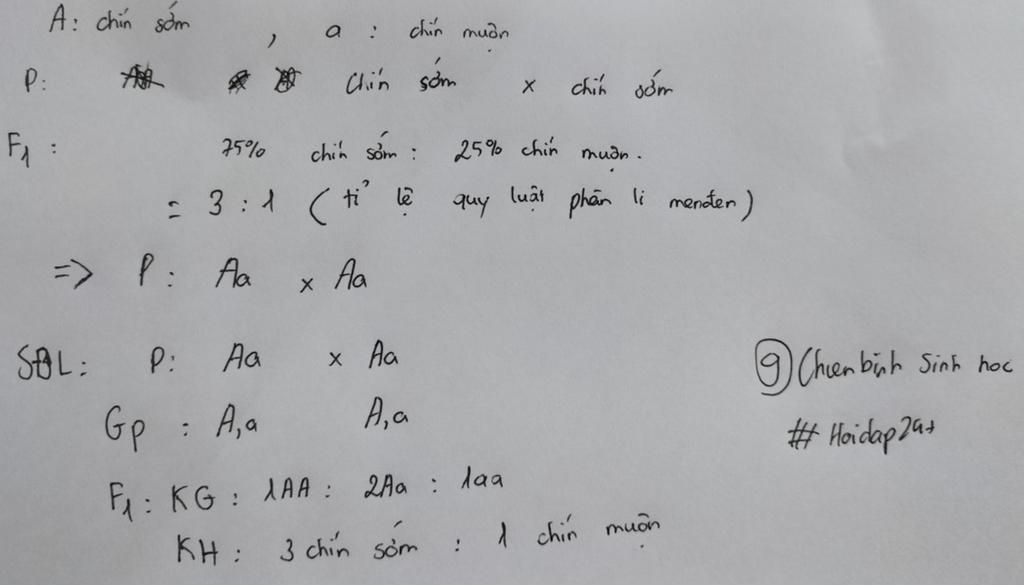 A: chín sớm , a : chín muộn
P: Chín sớm x chín sớm
F1 : 75% chín sớm : 25% chín muộn.
= 3 : 1 ( tỉ lệ quy luật phân li menđen )
=> P: Aa x Aa
SĐL: P: Aa x Aa
Gp : A,a A,a
F1 : KG : 1AA : 2Aa : 1aa
KH : 3 chín sớm : 1 chín muộn
9 Chienbinh Sinh hoc
# Hoidap24+